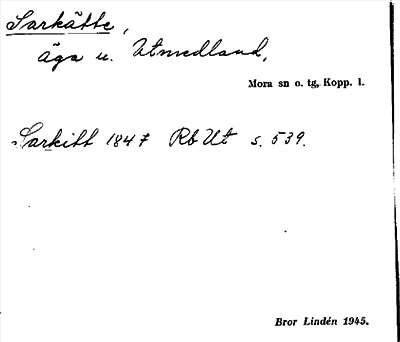 Sarkätte,
äga u. Utmedland,
Mora sn o. tg, Kopp. l.
Sarkitt 1847 Rb Ut s. 539.
Bror Lindén 1945.